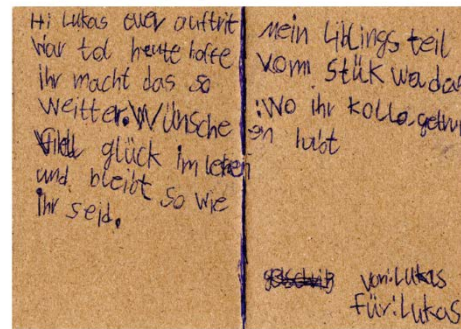 Hi Lukas euer auftrit
War tol heute hoffe
ihr macht das so
weitter. Wünsche
glück im leben
und bleibt so wie
ihr seid.
mein liblings teil
vom stük war das
:Wo ihr kolla getrun
en habt
von: Lukas
für: Lukas